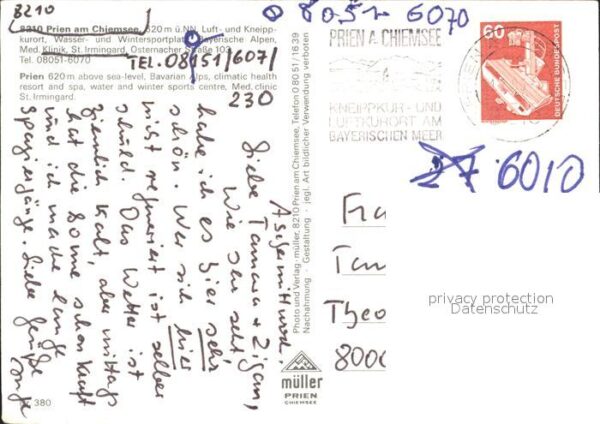 8210
8210 Prien am Chiemsee, 620 m ü.NN, Luft- und Kneipp-
kurort, Wasser- und Wintersportplatz, Bayerische Alpen,
Med. Klinik, St. Irmingard, Osternacher Straße 103,
Tel. 08051-6070
TEL. 08151/607/
230
Prien 620 m above sea-level, Bavarian Alps, climatic health
resort and spa, water and winter sports centre, Med. clinic
St. Irmingard.
80.51- 6070
PRIEN A CHIEMSEE
KNEIPPKUR- UND
LUFTKURORT AM
BAYERISCHEN MEER
60
DEUTSCHE BUNDESPOST
27 6010
Aschermittwoch.
Liebe Tamara +
Wie ihr seht,
habe ich es hier sehr
schön. Wer sich hier
nicht regeneriert ist selber
schuld. Das Wetter ist
ziemlich kalt, aber mittags
hat die Sonne schon Kraft
und ich mache lange
spaziergänge. Liebe Grüße
Photo und Verlag · müller, 8210 Prien am Chiemsee, Telefon 0 80 51 / 16 39
Nachahmung · Gestaltung · jegl. Art bildlicher Verwendung verboten
Fra
Tam
Theo
8000
privacy protection
Datenschutz
müller
PRIEN
CHIEMSEE
380